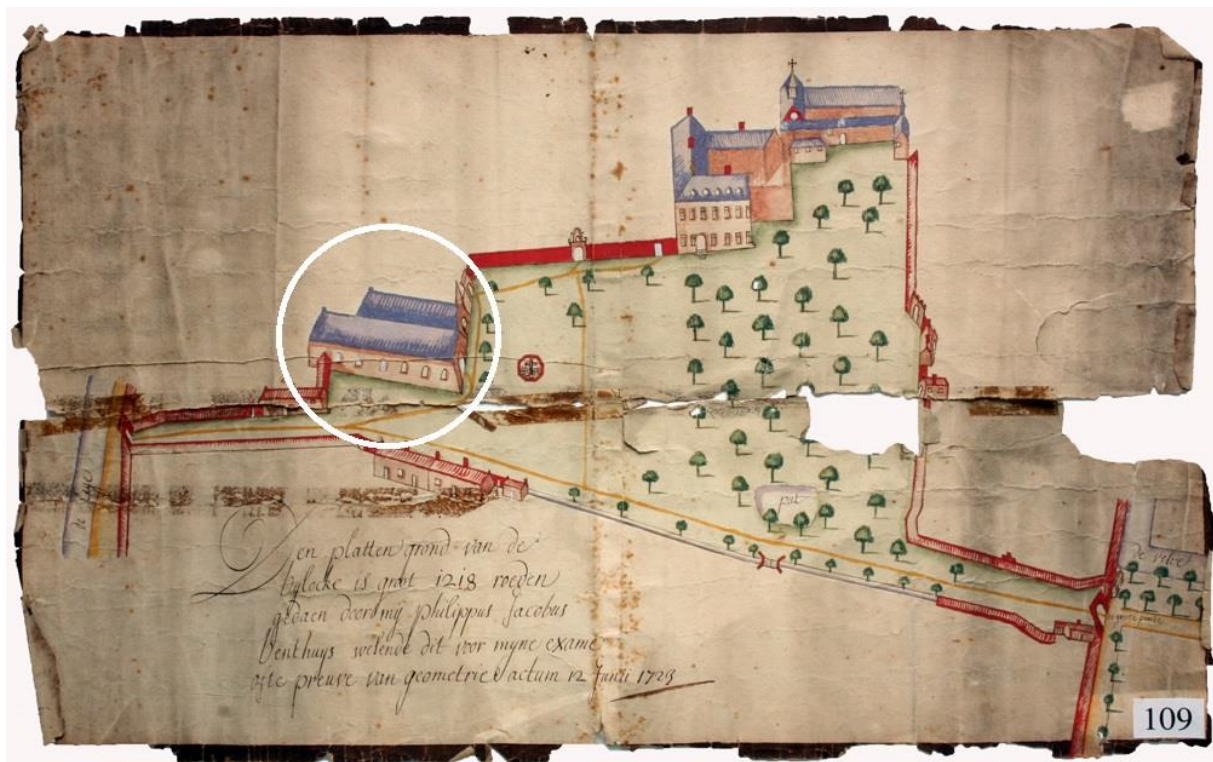 put
Den platten grond van de
Bylocke is groot 1218 roeden
gedaen door mij philippus Jacobus
Benthuys welende dit voor myne exame
ofte preuve van geometrie actum 12 Junii 1723
109